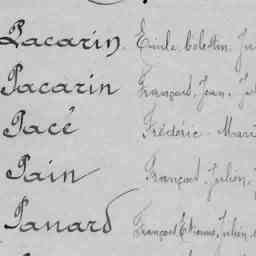 Pacarin Emile Célestin Ju
Pacarin François, Jean, Jul
Pacé Frédéric Marie
Pain François, Julien,
Panard François Etienne, Julien,